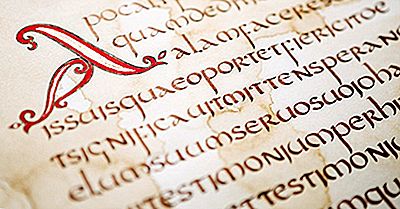 Apocal
quamdedi
alamfaceres
issuisquaeoportetfiericito
tsignificauitmittensperan
elumsuumseruosuoioha
testimoniumperhi
testimon